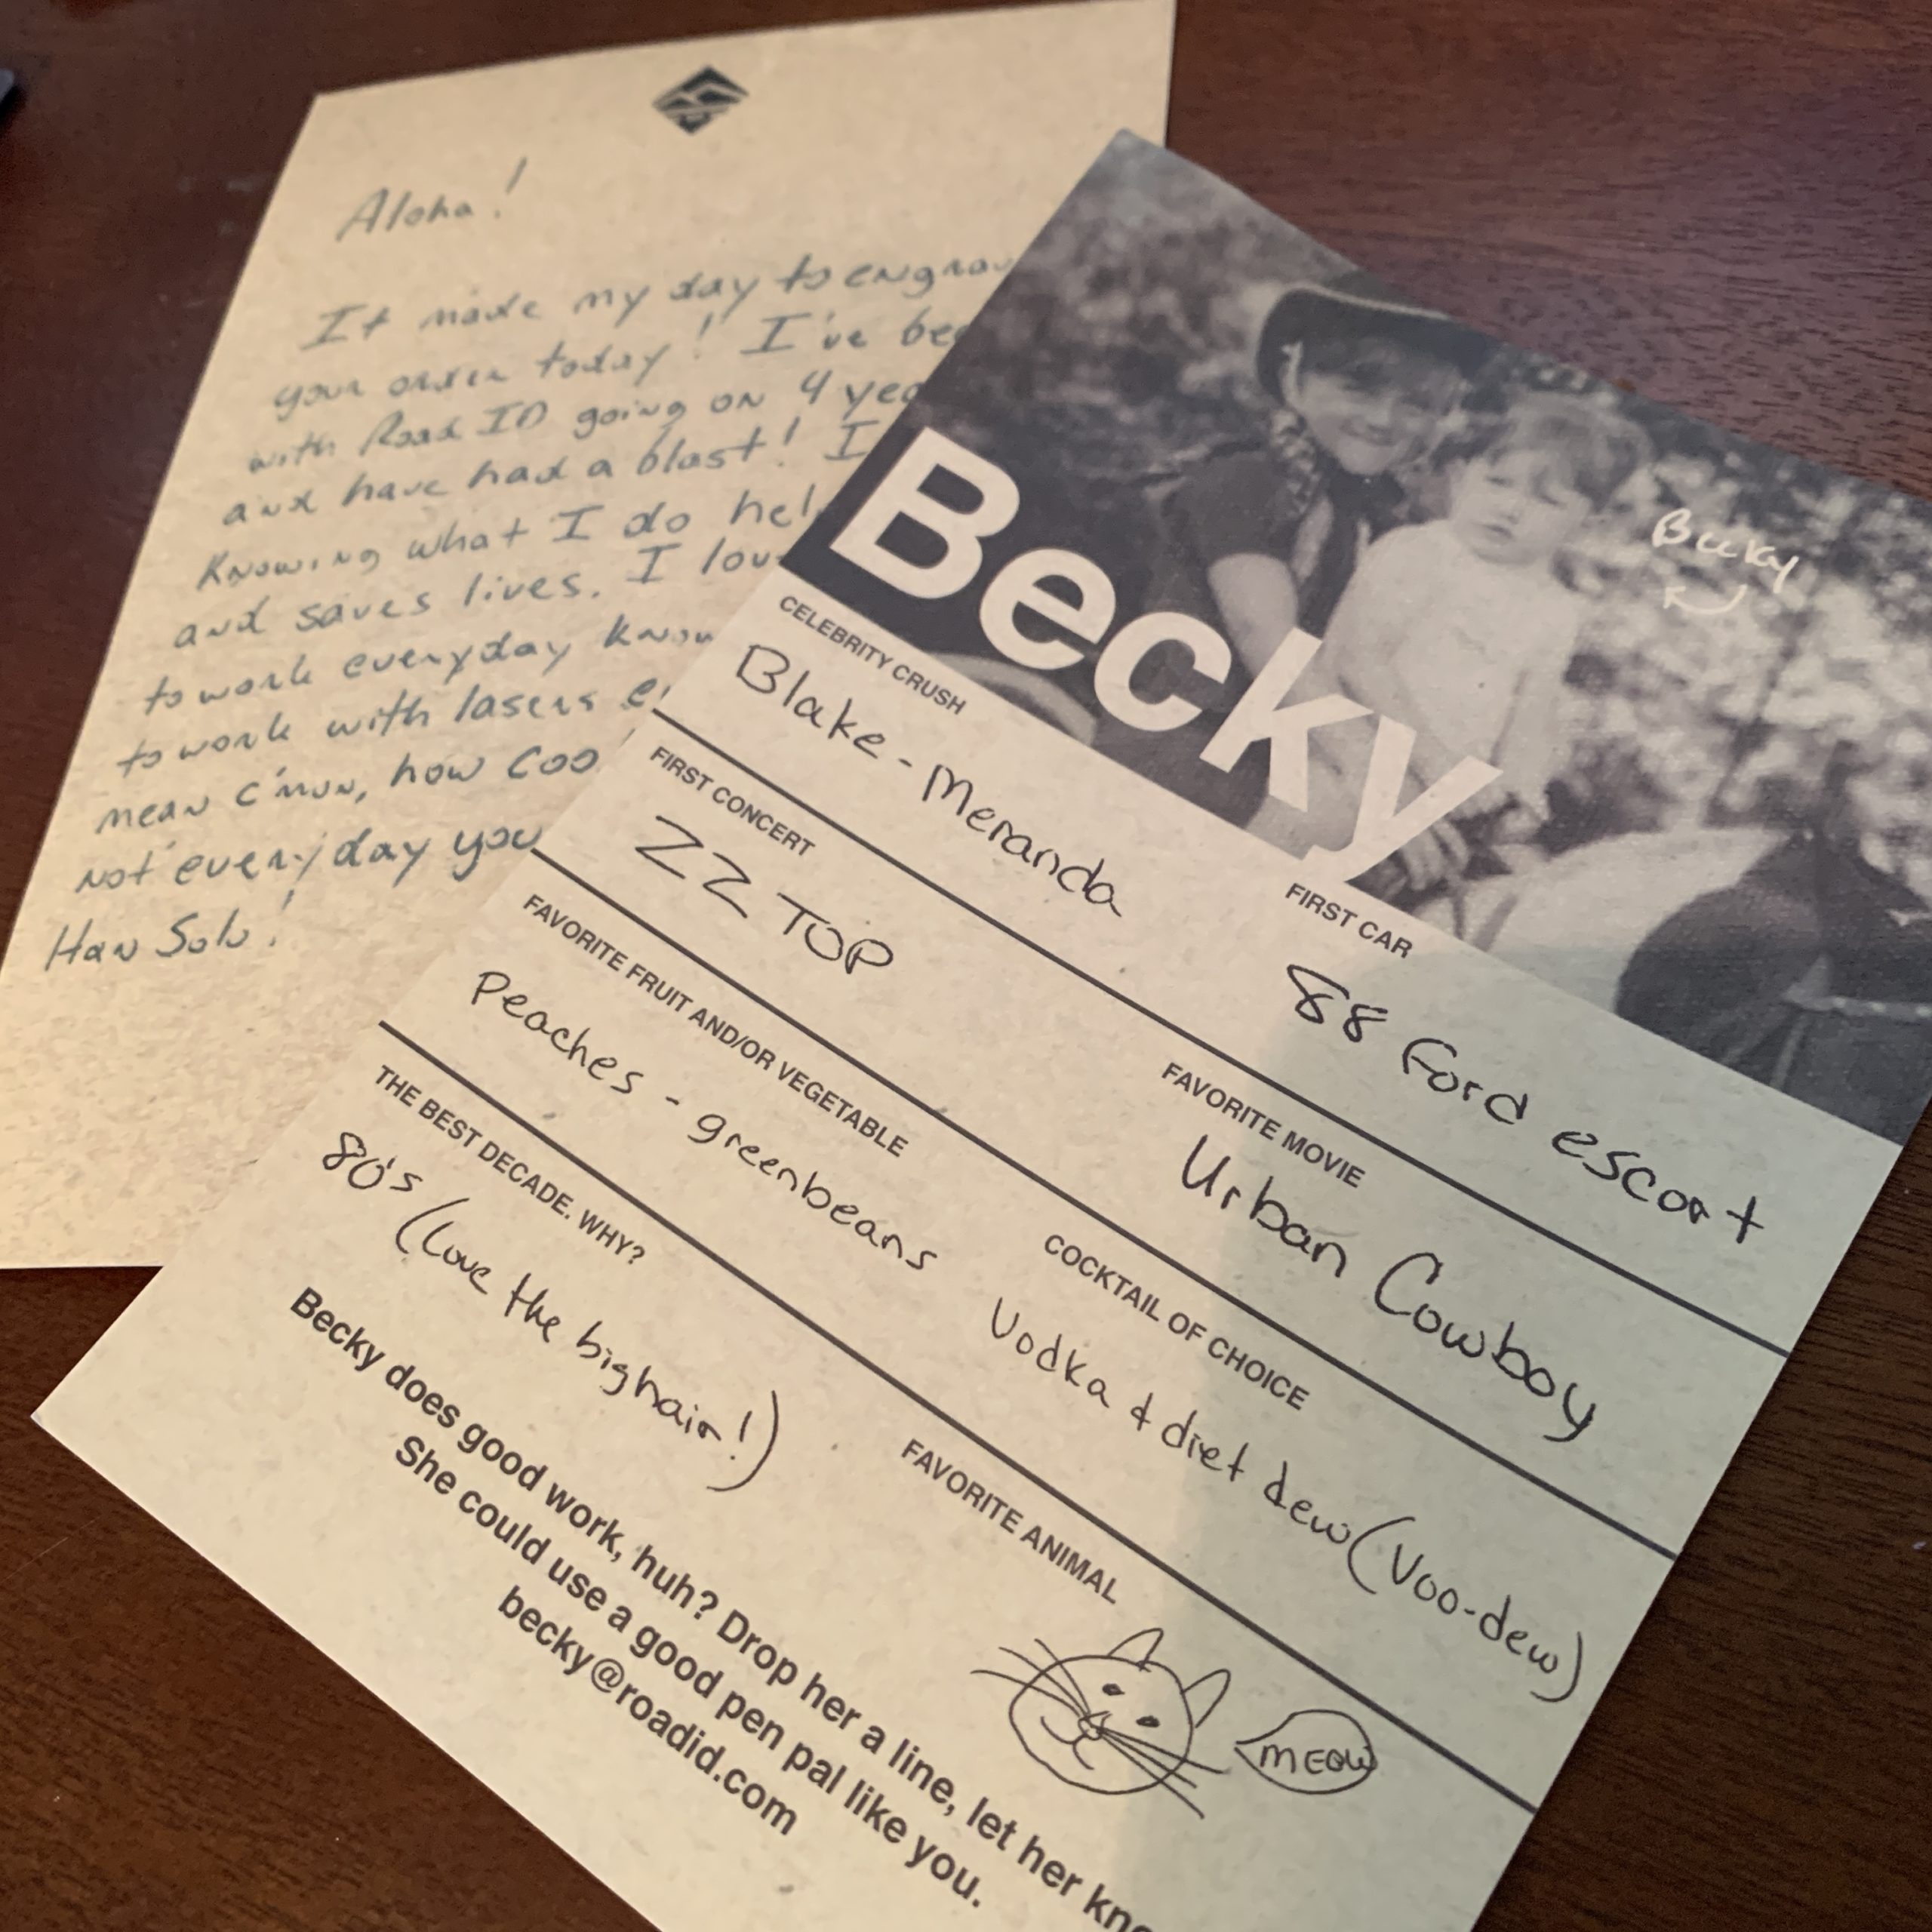 Aloha!
It made my day to engrav
your order today! I've bee
with Road ID going on 4 yea
and have had a blast! I
Knowing what I do hel
and saves lives. I lov
to work everyday know
to work with lasers
mean c'mon, how coo
not everyday you
Han Solo!
Becky
Becky
CELEBRITY CRUSH
Blake - Meranda
FIRST CAR
88 Ford escort
FIRST CONCERT
ZZ TOP
FAVORITE MOVIE
Urban Cowboy
FAVORITE FRUIT AND/OR VEGETABLE
Peaches - greenbeans
COCKTAIL OF CHOICE
Vodka & diet dew (Voo-dew)
THE BEST DECADE. WHY?
80's (Love the big hair!)
FAVORITE ANIMAL
MEOW
Becky does good work, huh? Drop her a line, let her kno
She could use a good pen pal like you.
becky@roadid.com